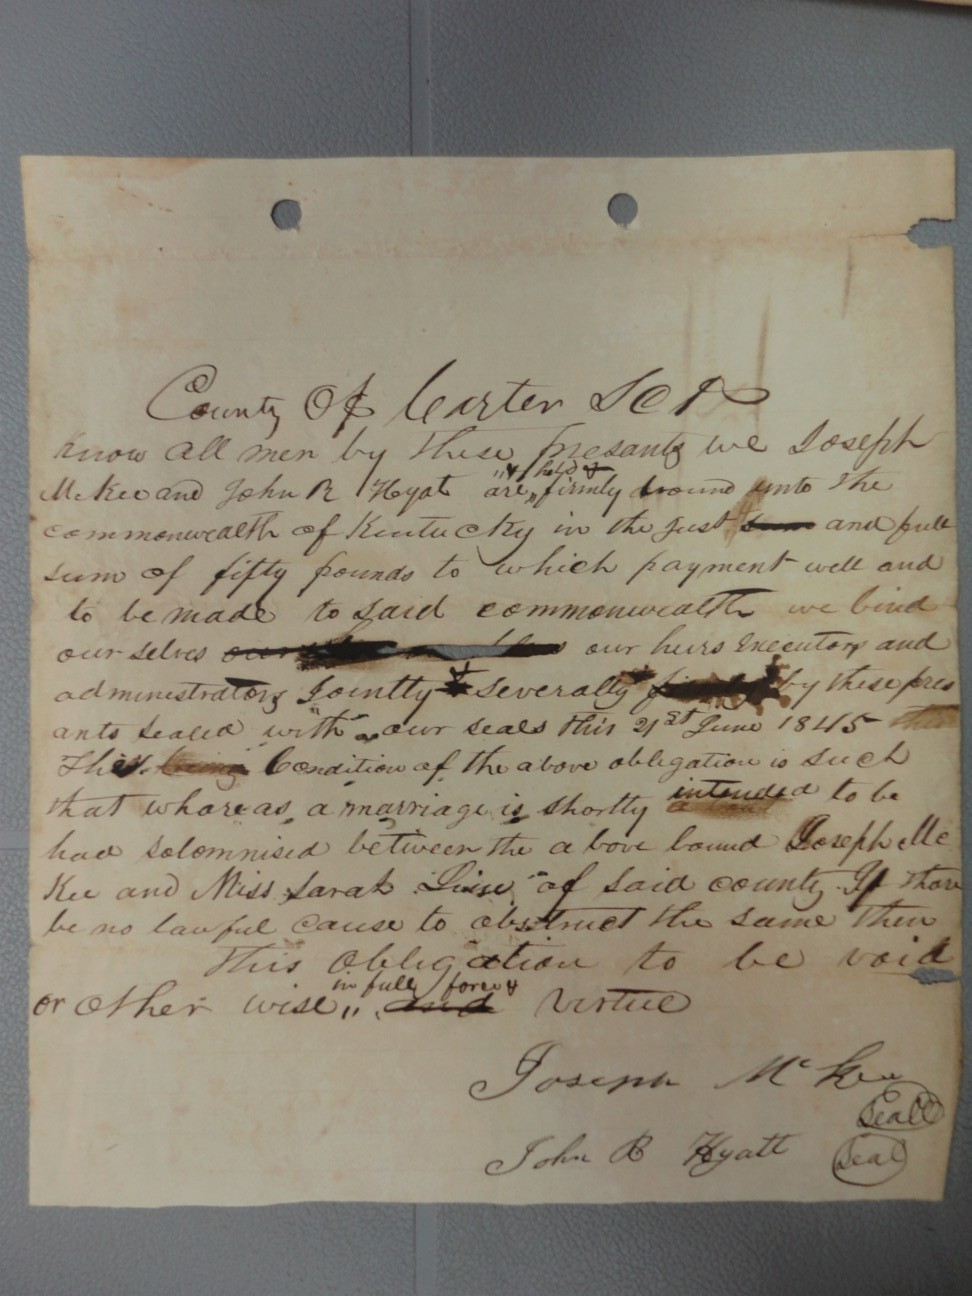 County Of Carter Sct
Know all men by these presants we Joseph
McKee and John R Hyat are, held & firmly bound unto the
commonwealth of Kentucky in the just sum and full
sum of fifty pounds to which payment well and
to be made to said commonwealth we bind
our selves our heirs Executors and
administrators Jointly & severally by these pres
ants sealed with our seals this 21st June 1845
The Condition of the above obligation is such
that whareas a marriage is shortly intended to be
had solomnised between the above bound Joseph Mc
Kee and Miss Sarah of said county. If thare
be no lawful cause to obstruct the same then
this obligation to be void
or other wise, in full force & virtue
Joseph McKee
Seal
John R Hyatt Seal